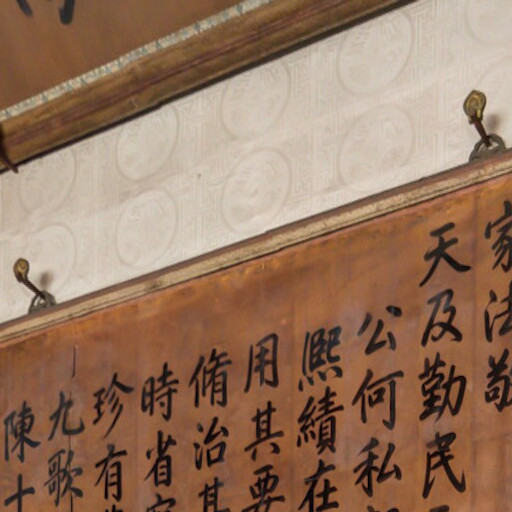 家法敬
天及勤民
公何私
熙績在
用其要
脩治其
時省
珍有
九歌
陳十